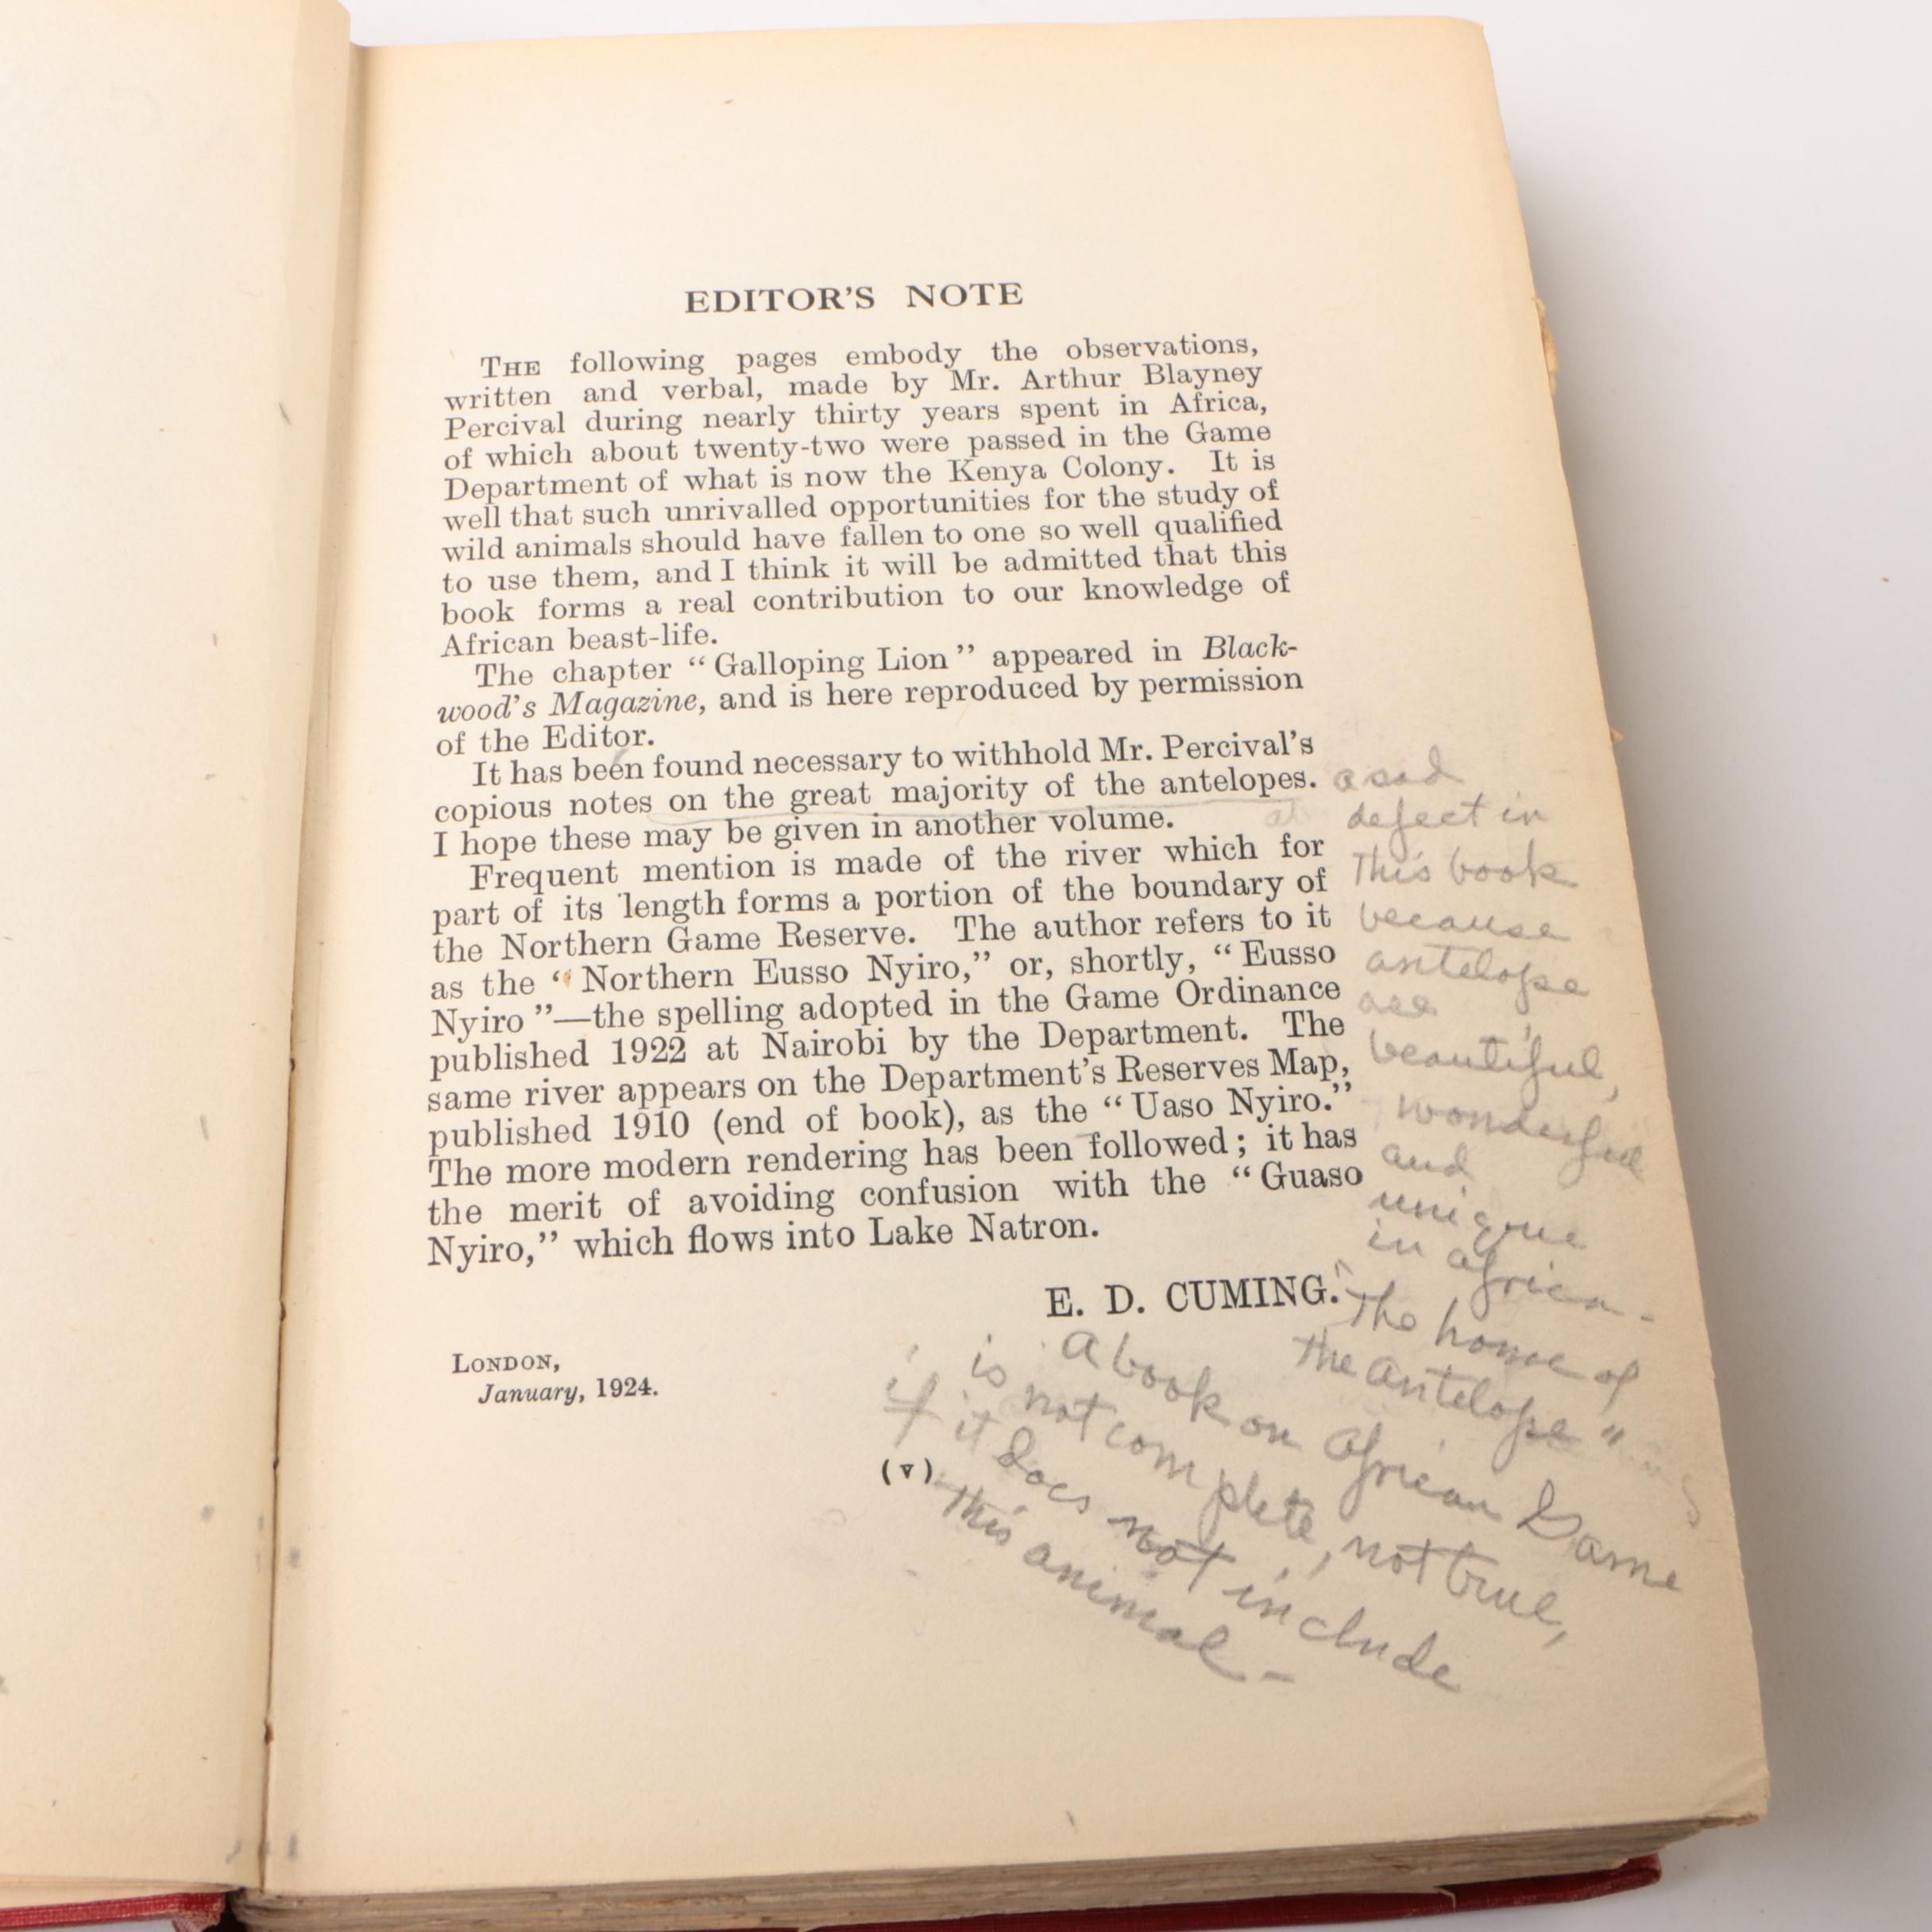 EDITOR'S NOTE
THE following pages embody the observations,
written and verbal, made by Mr. Arthur Blayney
Percival during nearly thirty years spent in Africa,
of which about twenty-two were passed in the Game
Department of what is now the Kenya Colony. It is
well that such unrivalled opportunities for the study of
wild animals should have fallen to one so well qualified
to use them, and I think it will be admitted that this
book forms a real contribution to our knowledge of
African beast-life.
The chapter “Galloping Lion” appeared in Black-
wood's Magazine, and is here reproduced by permission
of the Editor.
It has been found necessary to withhold Mr. Percival's
copious notes on the great majority of the antelopes.
I hope these may be given in another volume.
Frequent mention is made of the river which for
part of its length forms a portion of the boundary of
the Northern Game Reserve. The author refers to it
as the “Northern Eusso Nyiro,” or, shortly, “Eusso
Nyiro”—the spelling adopted in the Game Ordinance
published 1922 at Nairobi by the Department. The
same river appears on the Department's Reserves Map,
published 1910 (end of book), as the “Uaso Nyiro.”
The more modern rendering has been followed; it has
the merit of avoiding confusion with the “Guaso
Nyiro,” which flows into Lake Natron.
E. D. CUMING.
LONDON,
January, 1924.
(v)
a sad
defect in
This book
because
antelope
are
beautiful,
wonderful
and
unique
in africa-
"The home of
the antelope"
A book on African Game
is not complete, not true,
if it does not include
This animal-